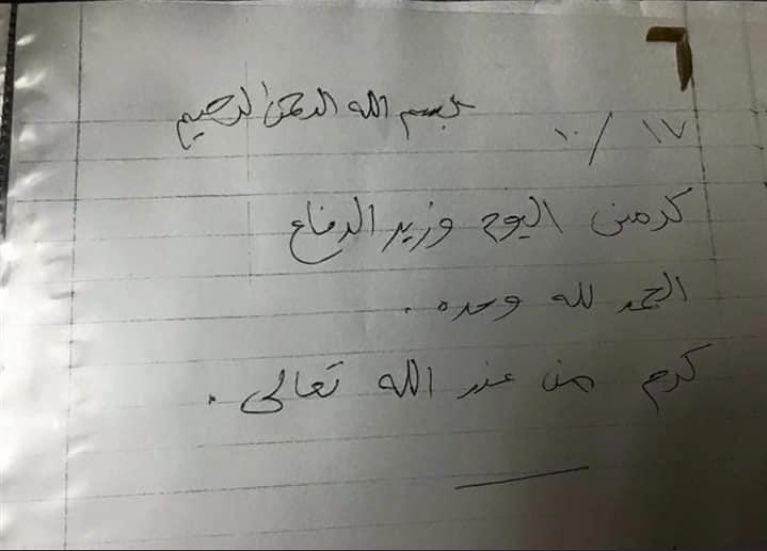 ٦
بسم الله الرحمن الرحيم
١٧ / ١٠
كرمني اليوم وزير الدفاع
الحمد لله وحده .
كرم من عند الله تعالى .